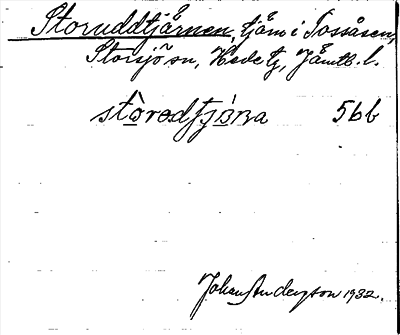 Storuddtjärnen, tjärn i Tossåsen,
Storsjö sn, Hede tg, Jämtl. l.
stòredtjá̱rna 56b
Johan Anderzson 1932.